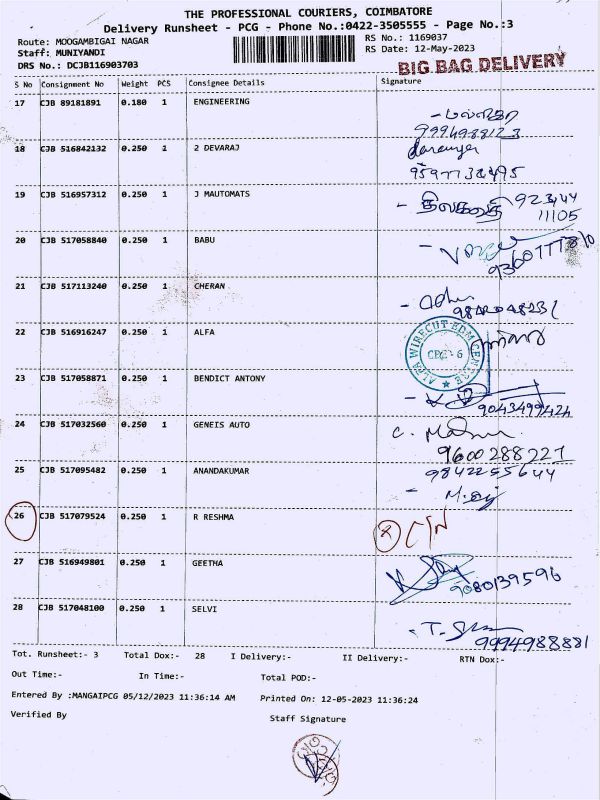 THE PROFESSIONAL COURIERS, COIMBATORE
Delivery Runsheet - PCG - Phone No.:0422-3505555 - Page No.:3
Route: MOOGAMBIGAI NAGAR
RS No.: 1169037
Staff: MUNIYANDI
RS Date: 12-May-2023
DRS No.: DCJB116903703
BIG BAG DELIVERY
S No Consignment No Weight PCS Consignee Details Signature
17 CJB 89181891 0.180 1 ENGINEERING
9994988123
18 CJB 516842132 0.250 1 2 DEVARAJ
9597738495
19 CJB 516957312 0.250 1 J MAUTOMATS
92344
11105
20 CJB 517058840 0.250 1 BABU
21 CJB 517113240 0.250 1 CHERAN
22 CJB 516916247 0.250 1 ALFA
ALFA WIRECUT EDM CENTRE
CBE - 6
23 CJB 517058871 0.250 1 BENDICT ANTONY
9043499424
24 CJB 517032560 0.250 1 GENEIS AUTO
9600288227
25 CJB 517095482 0.250 1 ANANDAKUMAR
9842255644
26 CJB 517079524 0.250 1 R RESHMA
27 CJB 516949801 0.250 1 GEETHA
9080139596
28 CJB 517048100 0.250 1 SELVI
9994988881
Tot. Runsheet:- 3 Total Dox:- 28 I Delivery:- II Delivery:- RTN Dox:-
Out Time:- In Time:- Total POD:-
Entered By :MANGAIPCG 05/12/2023 11:36:14 AM Printed On: 12-05-2023 11:36:24
Verified By Staff Signature